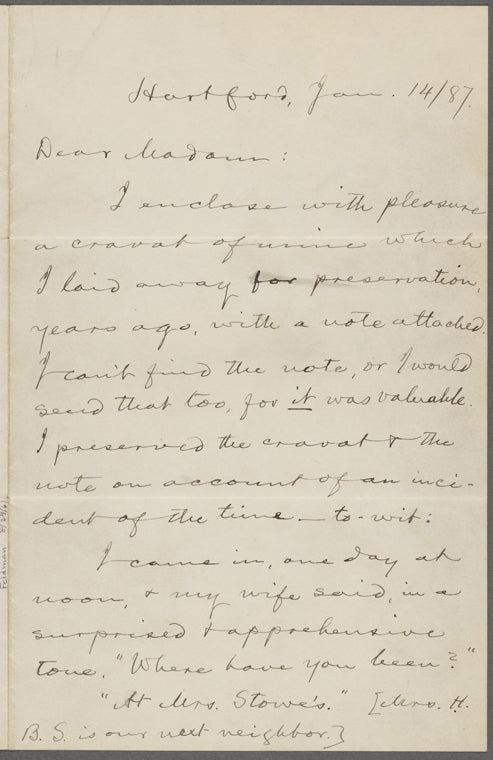 Hartford, Jan. 14/87.
Dear Madam:
I enclose with pleasure
a cravat of mine which
I laid away for preservation,
years ago, with a note attached.
I can't find the note, or I would
send that too, for it was valuable.
I preserved the cravat & the
note on account of an inci-
dent of the time—to-wit:
I came in, one day at
noon, & my wife said, in a
surprised & apprehensive
tone, "Where have you been?"
"At Mrs. Stowe's." [Mrs. H.
B. S. is our next neighbor.]
Feldman 8/29/61